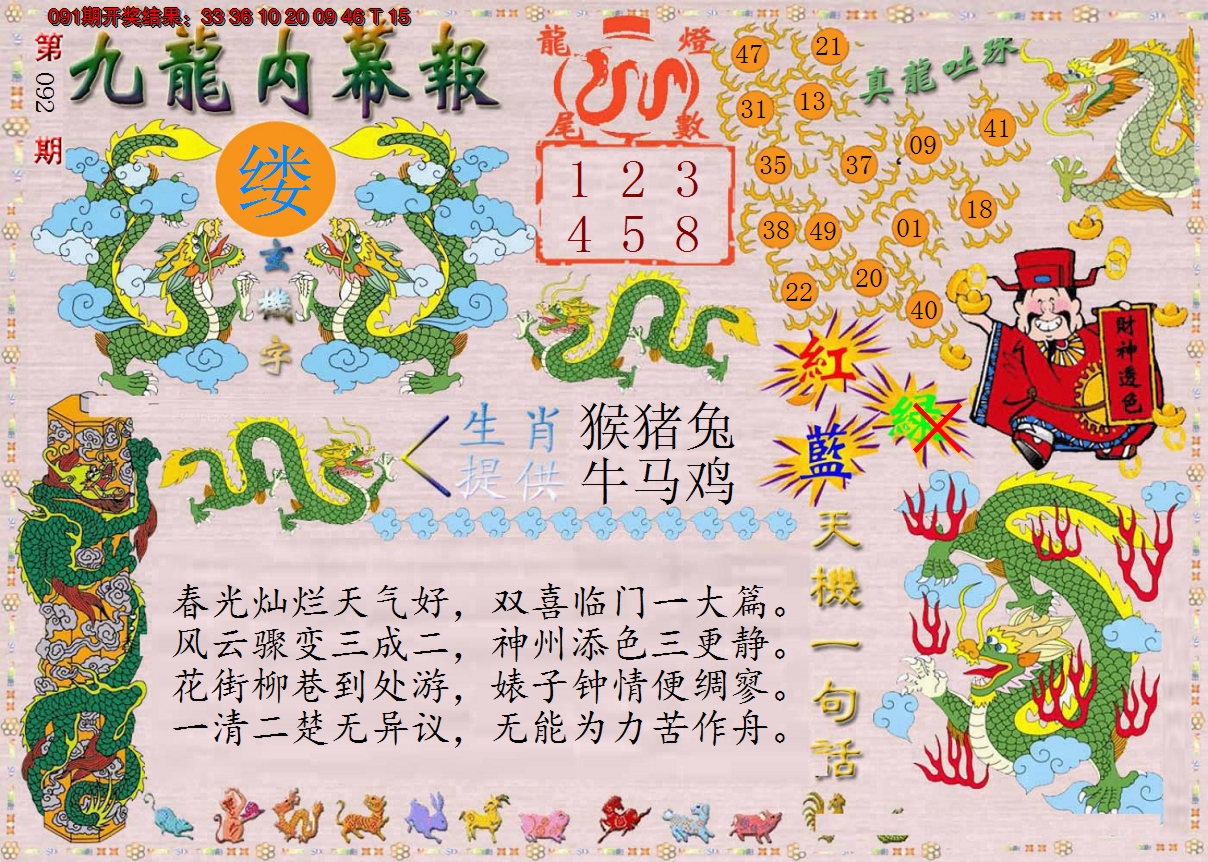 091期开奖结果：33 36 10 20 09 46 T 15
第092期
九龍内幕報
缕
玄機字
龍燈尾數
1 2 3
4 5 8
真龍吐珠
47 21
31 13
35 37 09 41
38 49 01 18
22 20 40
財神透色
紅
綠
藍
生肖 猴猪兔
提供 牛马鸡
天機一句话
春光灿烂天气好，双喜临门一大篇。
风云骤变三成二，神州添色三更静。
花街柳巷到处游，婊子钟情便绸寥。
一清二楚无异议，无能为力苦作舟。